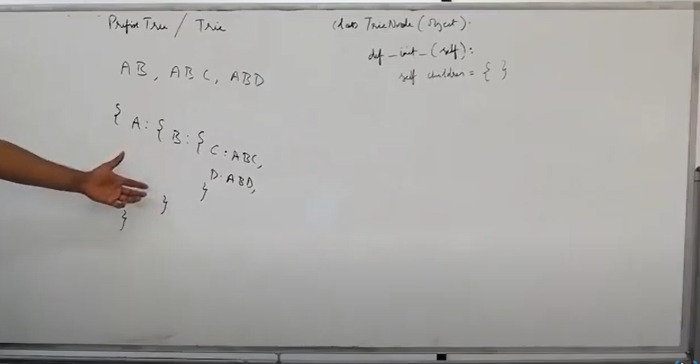 Prefix Tree / Trie
AB, ABC, ABD
{ A: { B: { C: ABC,
D: ABD,
}
}
}
class TrieNode (object):
def _init_ (self):
self children = { }